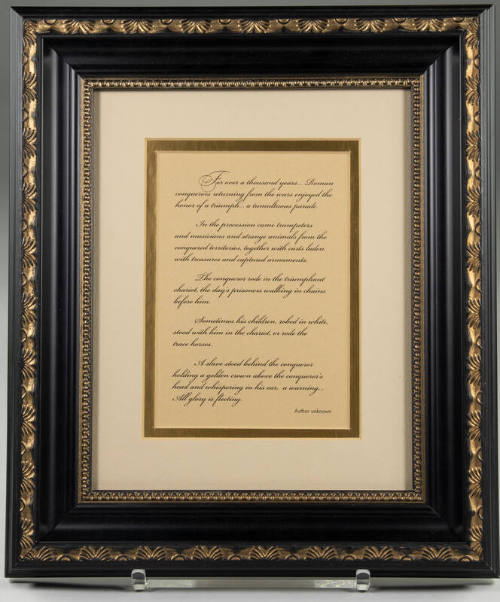 For over a thousand years... Roman
conquerors returning from the wars enjoyed the
honor of a triumph... a tumultuous parade.
In the procession came trumpeters
and musicians and strange animals from the
conquered territories, together with carts laden
with treasures and captured armaments.
The conqueror rode in the triumphant
chariot, the day's prisoners walking in chains
before him.
Sometimes his children, robed in white,
stood with him in the chariot, or rode the
trace horses.
A slave stood behind the conqueror
holding a golden crown above the conqueror's
head and whispering in his ear, a warning...
All glory is fleeting.
Author unknown